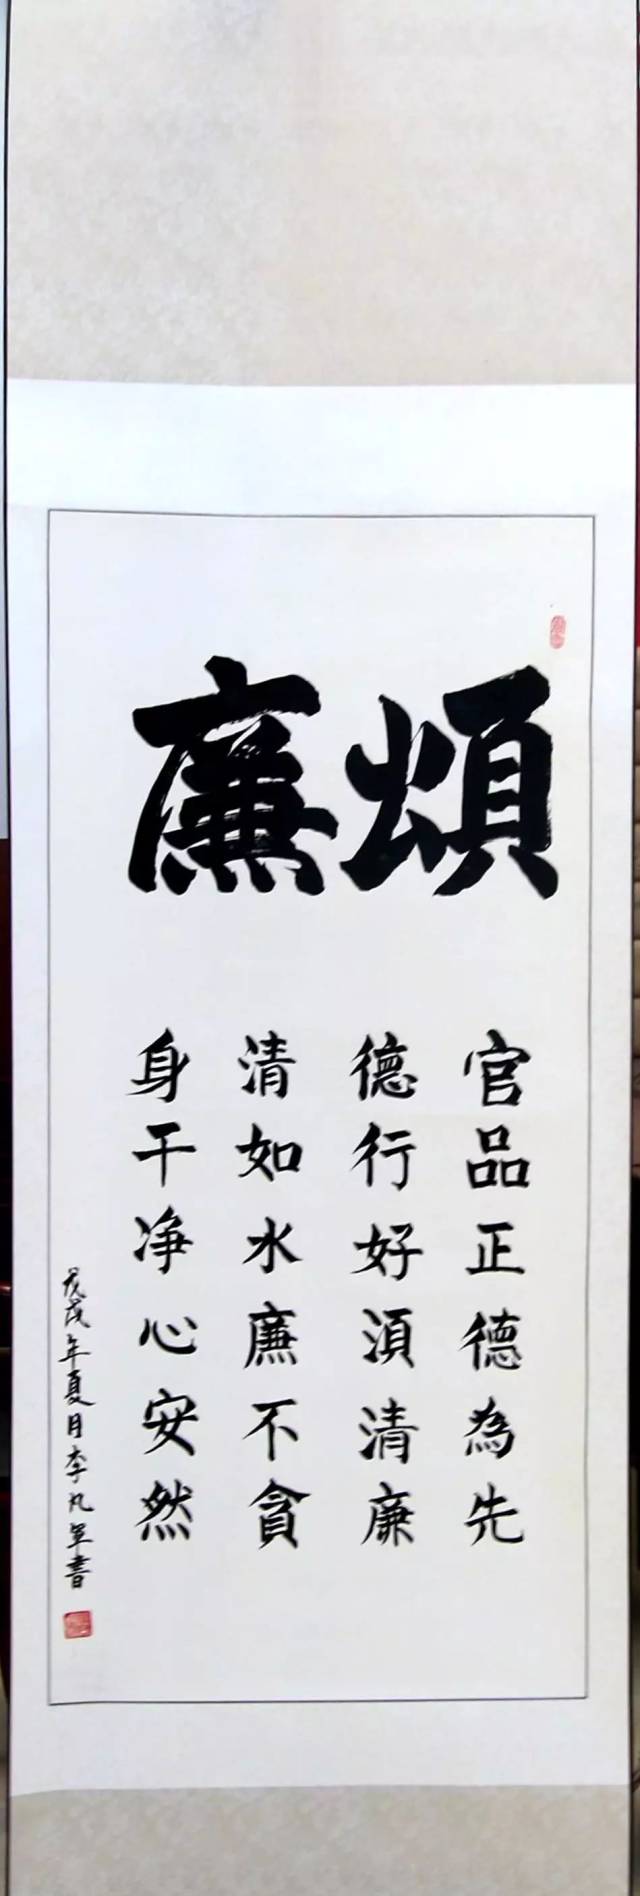 頌廉
官品正德為先
德行好須清廉
清如水廉不貪
身干净心安然
戊戌年夏月李九军書